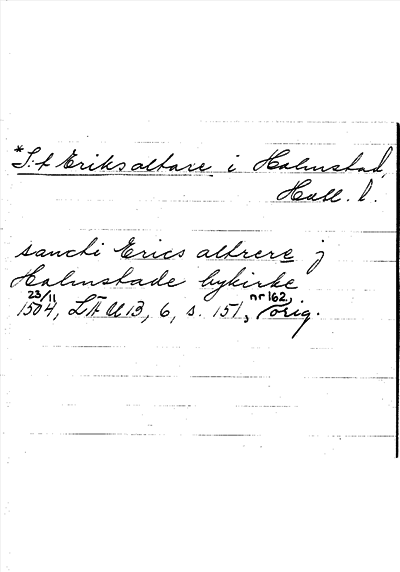 *S:t Eriks altare i Halmstad,
Hall. l.
sancti Erics altrere j
Halmstade bykirke
23/11 1504, LÄU 13, 6, s. 151, nr 162, orig.